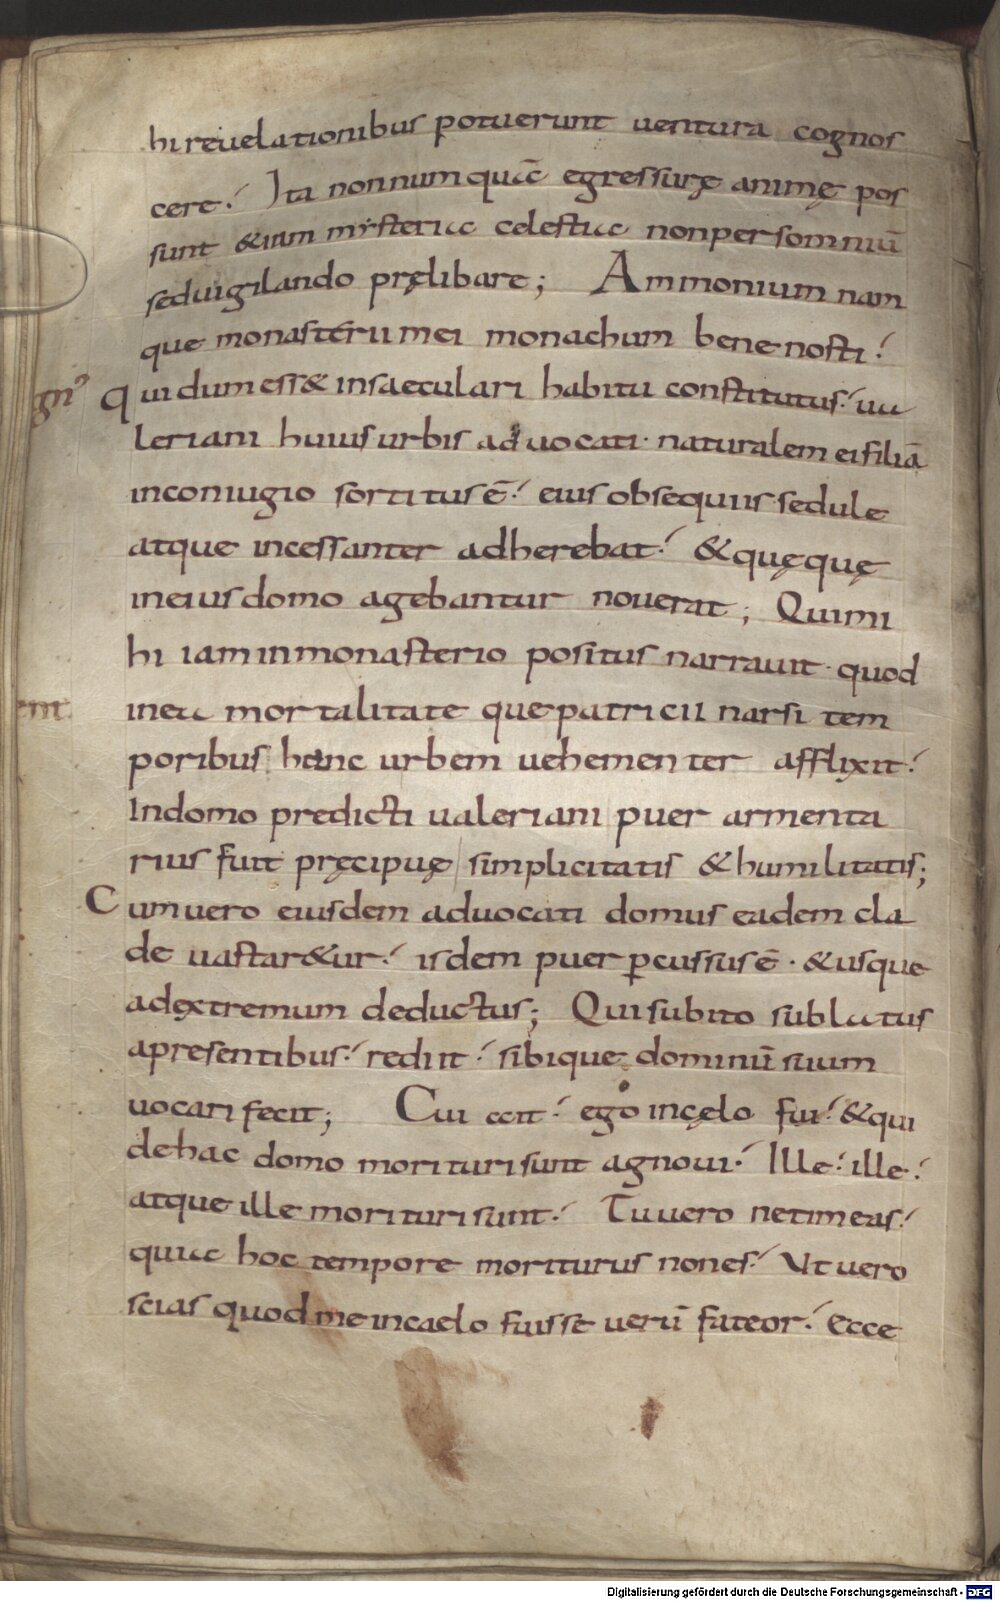 hi reuelationibus potuerunt uentura cognos
cere. Ita nonnumquā egressurę animę pos
sunt &iam mysteria celestia non per somniū
sed uigilando pręlibare; Ammonium nam
que monasterii mei monachum bene nosti.
gn̄ Qui dum ess& in saeculari habitu constitutus. ua
leriani huius urbis aduocati. naturalem ei filiā
in coniugio sortitus ē. eius obsequiis sedule
atque incessanter adherebat. & quęquę
in eius domo agebantur nouerat; Qui mi
hi iam in monasterio positus narrauit. quod
ent in ea mortalitate que patricii narsi tem
poribus hanc urbem uehementer afflixit.
In domo predicti ualeriani puer armenta
rius fuit pręcipuę simplicitatis & humilitatis;
Cum uero eiusdem aduocati domus eadem cla
de uastar&ur. isdem puer p̄cussus ē. & usque
ad extremum deductus; Qui subito sublatus
a presentibus. rediit. sibique dominū suum
uocari fecit; Cui ait. ego in cęlo fui. & qui
de hac domo morituri sunt agnoui. Ille. ille.
atque ille morituri sunt. Tu uero ne timeas.
quia hoc tempore moriturus non es. Ut uero
scias quod me in caelo fuisse uerū fateor. Ecce
Digitalisierung gefördert durch die Deutsche Forschungsgemeinschaft - DFG